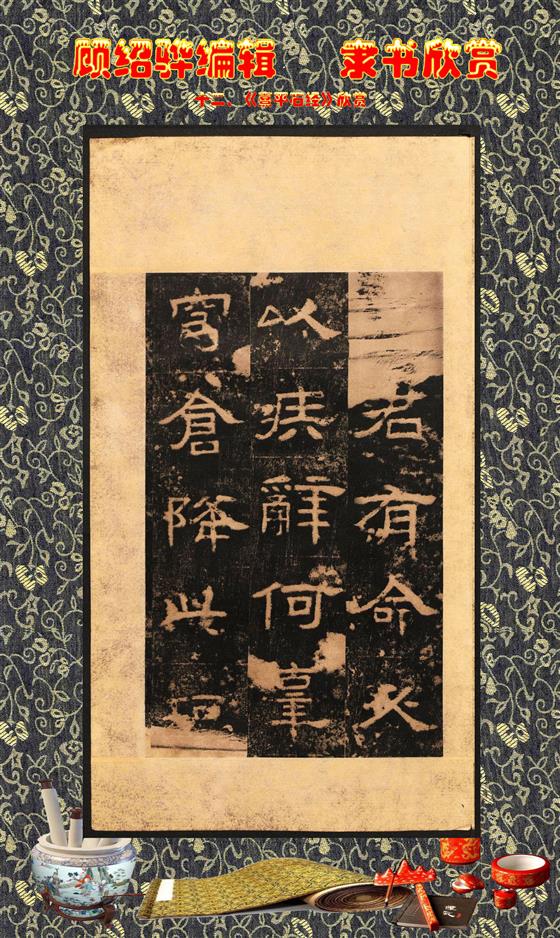 顾绍骅编辑 隶书欣赏
十二、《熹平石经》欣赏
君有命必
以疾辭何辜
穹倉降此